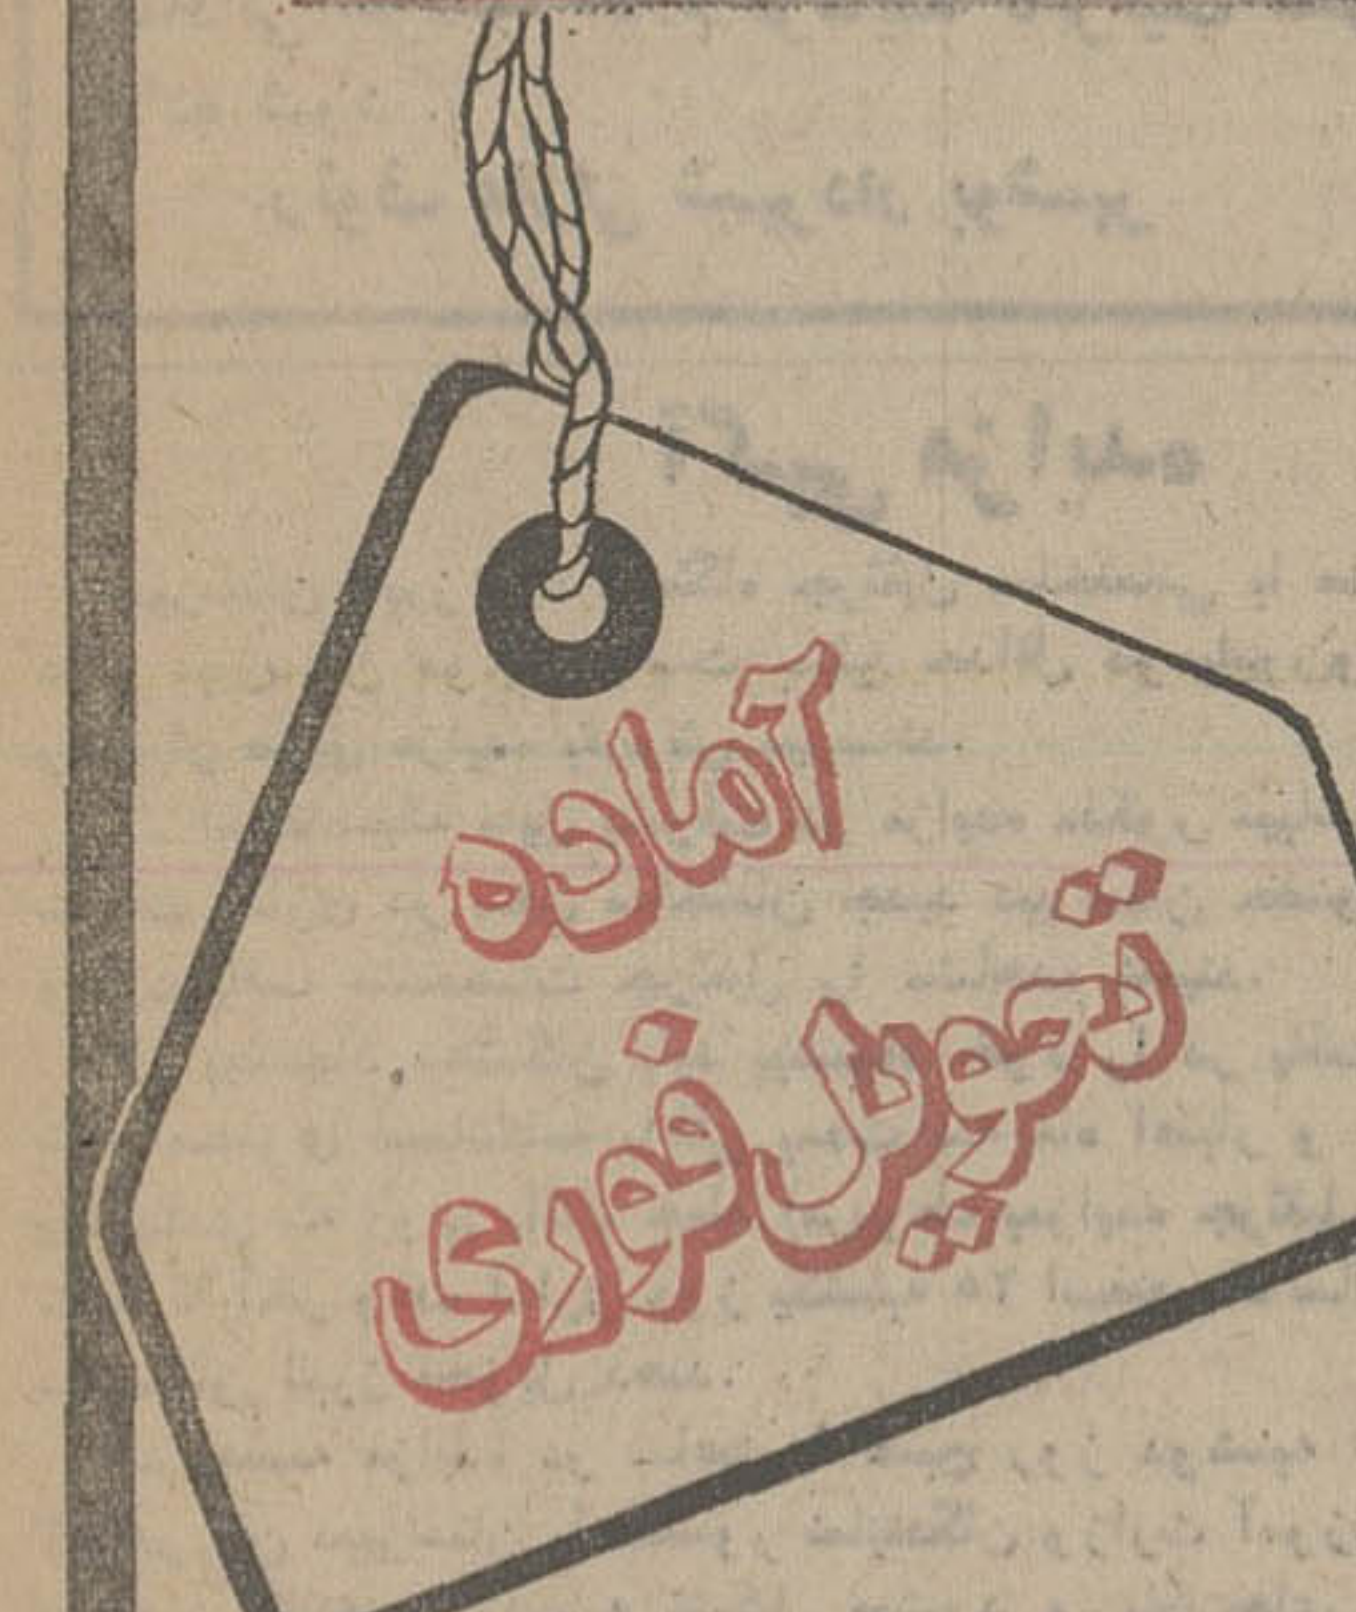 آماده
تحویل فوری